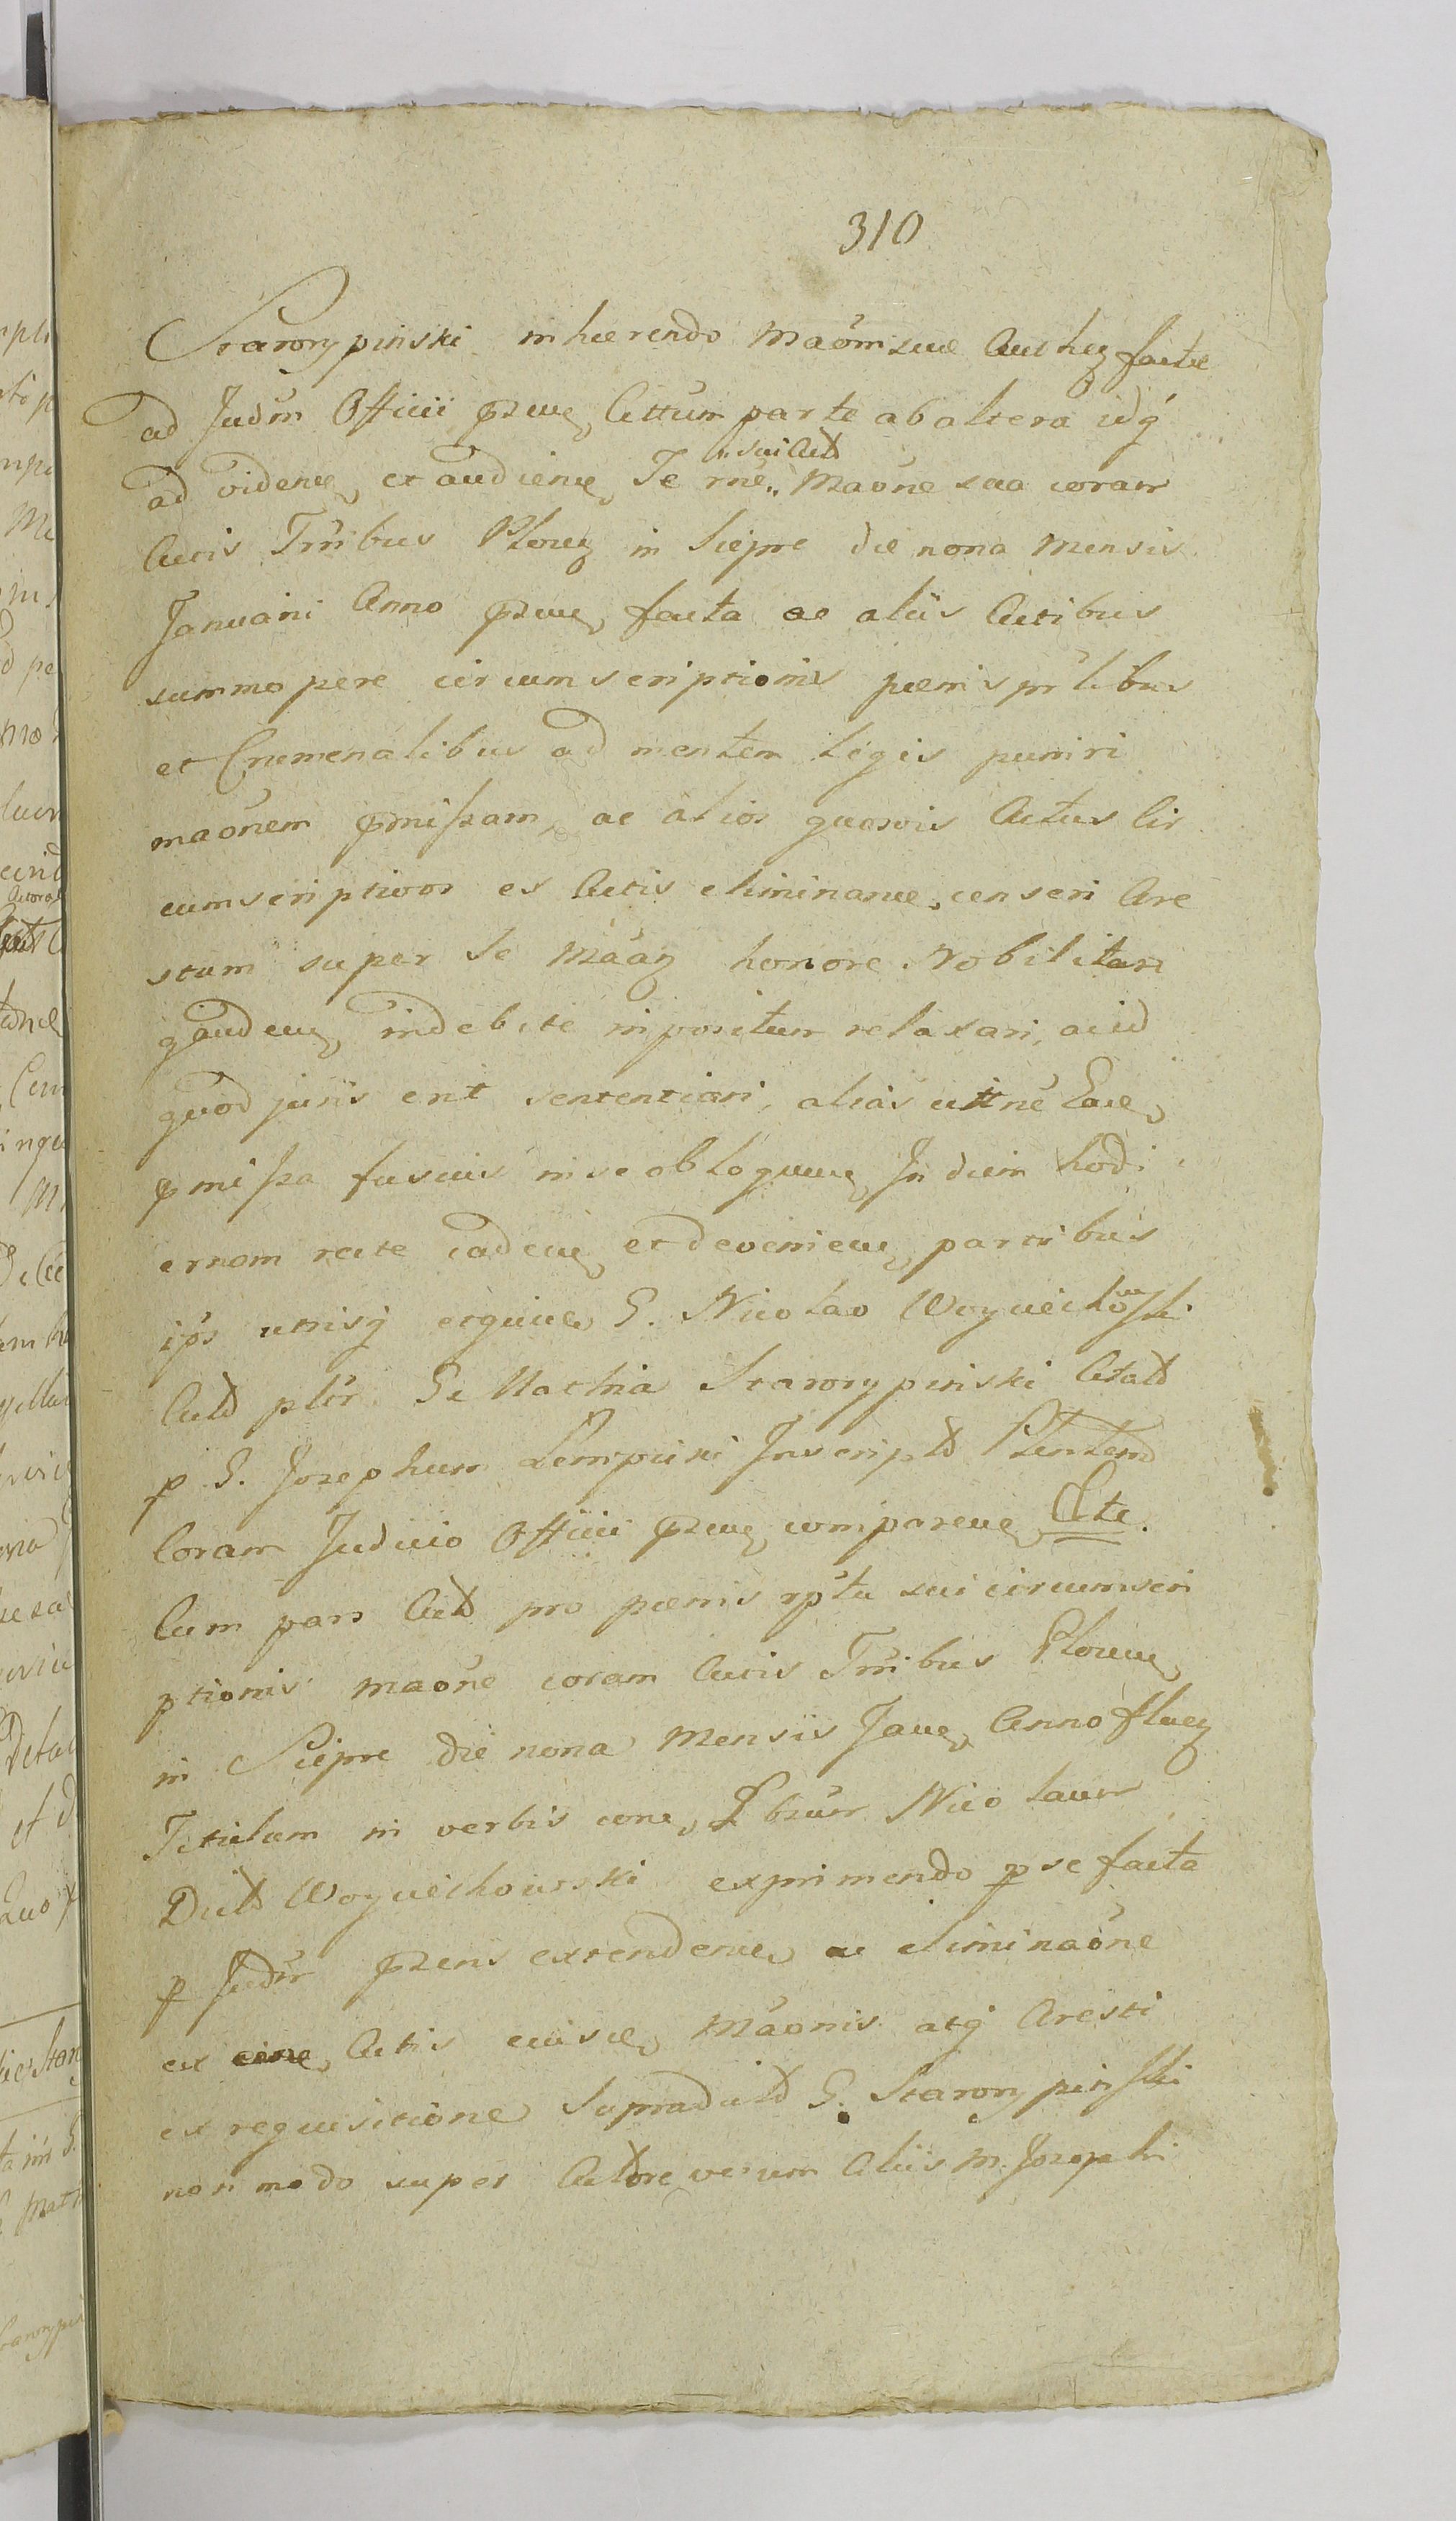 310
Starorypinski inhaerendo Maõni suae Authen factae
ad Judm Officii pzen Cittum parte ab altera idq
ad viden et audien Te rne sui Actt Maone sua coram
Actis Trribus Plocen in Siepre die nona Mensis
Januarii Anno pzen facta ac aliis Actibus
summopere circumscriptionis paenis prlibus
et Cremenalibus ad mentem legis puniri
maonem pmissam, ac alios quosvis Actus Cir
cumscriptivos ex Actis eliminan, censeri Are
stum super Se honore Nobilitari
gauden indebite impositum relaxari, ac id
quod juris erit sententiari, alias
pmissa fusius in se obloquen In diem hodi
ernam recte caden et devenien partibus
ips utrisq G. Nicolao Woyciechowski
Actt plir G. Mathia Starorypinski Citatt
p G. Josephum Lempicki Inscriptt Plentem
Coram Judicio Officii pzen comparen Etc.
Cum pars Actt pro paenis rptu sui circumscri
ptionis maone coram Actis Trribus Plocen
in Siepre die nona Mensis Jan Anno fluen
Titulum in verbis con Nicolaum
Dictt Woyciechowski exprimendo p se facta
p Judm pzens extenden ac eliminaone
ex Actis Maonis atq Aresti
ex requisitione Supradictt G. Starorypinski
non modo super Acttore verum Aliis M. Josephi